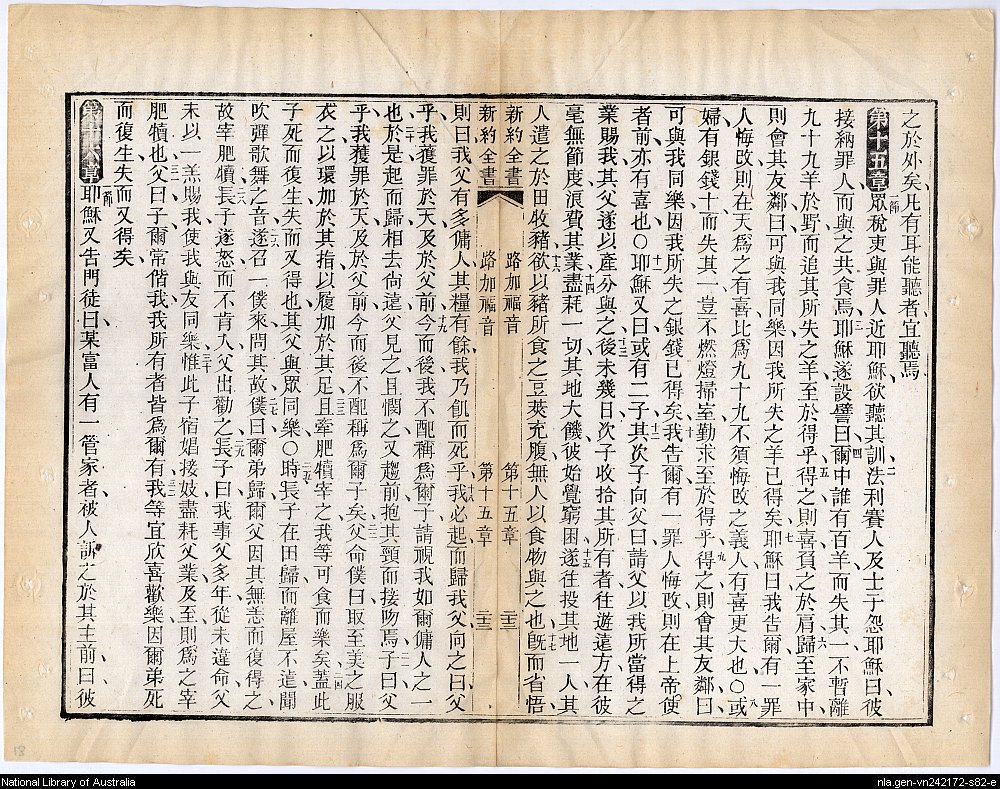 之於外矣凡有耳能聽者宜聽焉
第十五章 一節 眾稅吏與罪人近耶穌欲聽其訓二法利賽人及士子怨耶穌曰彼
接納罪人而與之共食焉三耶穌遂設譬曰四爾中誰有百羊而失其一不暫離
九十九羊於野而追其所失之羊至於得乎五得之則喜負之於肩六歸至家中
則會其友鄰曰可與我同樂因我所失之羊已得矣七耶穌曰我告爾有一罪
人悔改則在天爲之有喜比爲九十九不須悔改之義人有喜更大也〇八或
婦有銀錢十而失其一豈不燃燈掃室勤求至於得乎九得之則會其友鄰曰
可與我同樂因我所失之銀錢已得矣十我告爾有一罪人悔改則在上帝使
者前亦有喜也〇十一耶穌又曰或有二子十二其次子向父曰請父以我所當得之
業賜我其父遂以產分與之十三後未幾日次子收拾其所有者往遊遠方在彼
毫無節度浪費其業十四盡耗一切其地大饑彼始覺窮困十五遂往投其地一人其
人遣之於田牧豬十六欲以豬所食之豆莢充腹無人以食物與之也十七旣而省悟
新約全書 路加福音 第十五章 三十三
新約全書 路加福音 第十五章 三十三
則曰我父有多傭人其糧有餘我乃飢而死乎十八我必起而歸我父向之曰父
乎我獲罪於天及於父前十九今而後我不配稱爲爾子請視我如爾傭人之一
也二十於是起而歸相去尙遠父見之且憫之又趨前抱其頸而接吻焉二一子曰父
乎我獲罪於天及於父前今而後不配稱爲爾子矣二二父命僕曰取至美之服
衣之以環加於其指以履加於其足二三且牽肥犢宰之我等可食而樂矣二四蓋此
子死而復生失而又得也其父與眾同樂〇二五時長子在田歸而離屋不遠聞
吹彈歌舞之音二六遂召一僕來問其故二七僕曰爾弟歸爾父因其無恙而復得之
故宰肥犢二八長子遂怒而不肯入父出勸之二九長子曰我事父多年從未違命父
未以一羔賜我使我與友同樂三十惟此子宿娼接妓盡耗父業及至則爲之宰
肥犢也三一父曰子爾常偕我我所有者皆爲爾有三二我等宜欣喜歡樂因爾弟死
而復生失而又得矣
第十六章 一節 耶穌又告門徒曰某富人有一管家者被人訴之於其主前曰彼
18
National Library of Australia
nla.gen-vn242172-s82-e